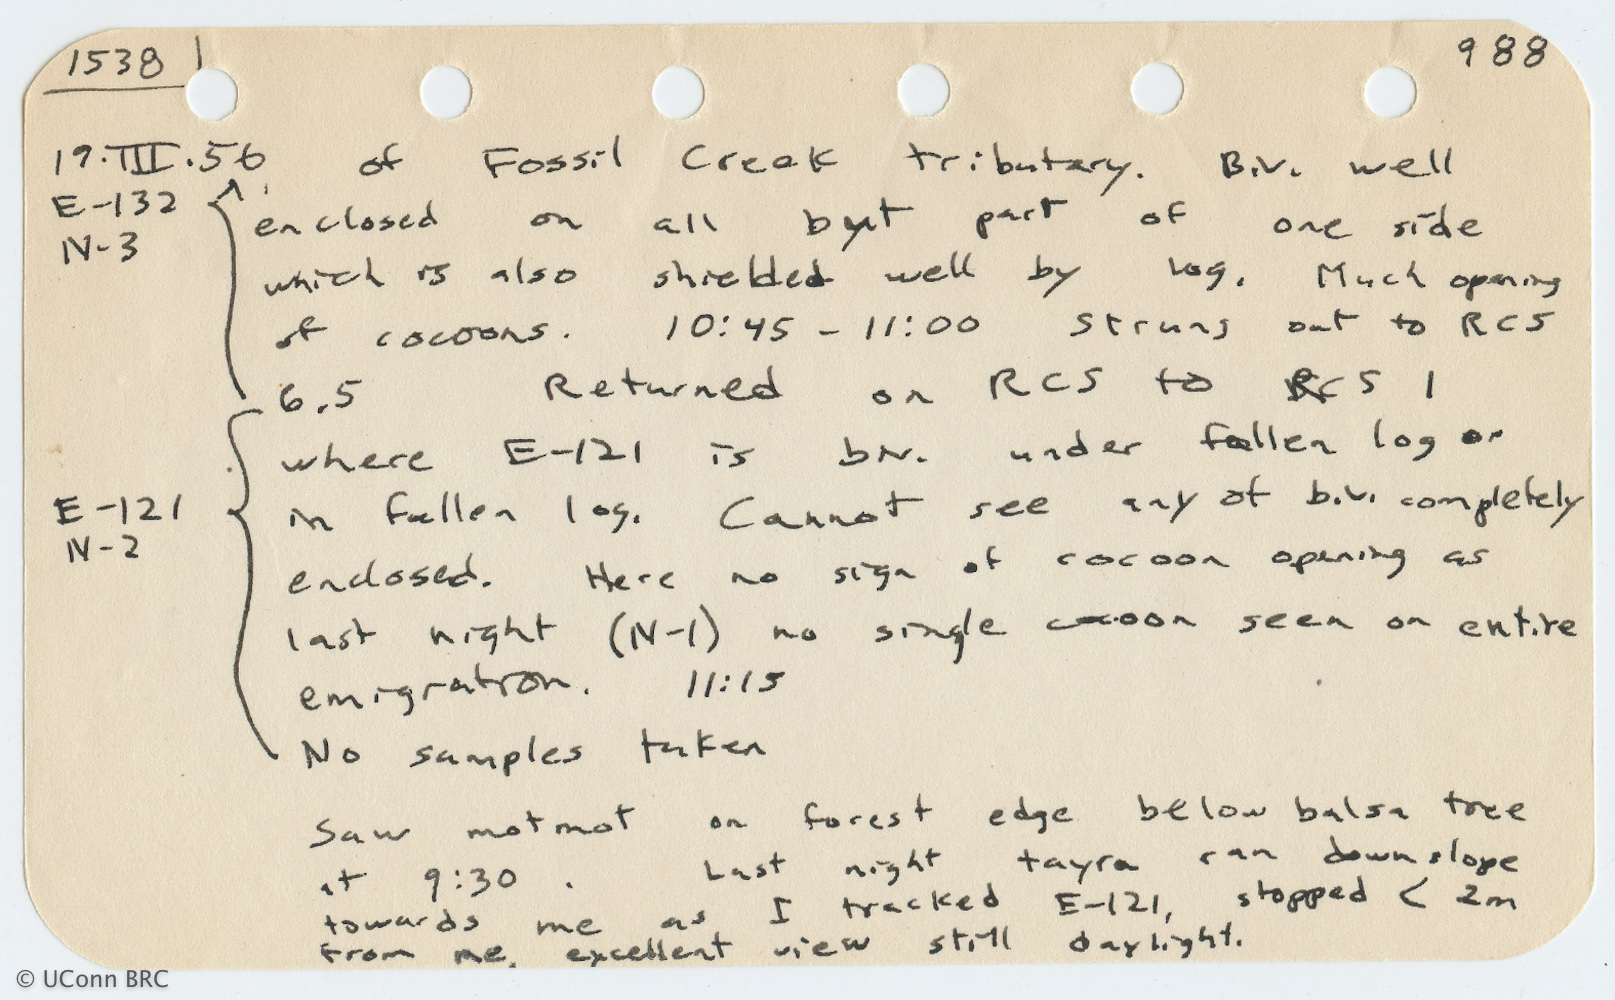 1538 988
19.III.56 of Fossil Creek tributary. Biv. well
E-132 enclosed on all but part of one side
N-3
which is also shielded well by log. Much opening
of cocoons. 10:45 - 11:00 Strung out to RCS
6.5 Returned on RCS to RCS 1
where E-121 is biv. under fallen log or
E-121 in fallen log. Cannot see any of b.v. completely
N-2
enclosed. Here no sign of cocoon opening as
last night (N-1) no single cocoon seen on entire
emigration. 11:15
No samples taken
Saw motmot on forest edge below balsa tree
at 9:30. Last night tayra ran downslope
towards me as I tracked E-121, stopped < 2m
from me, excellent view still daylight.
© UConn BRC